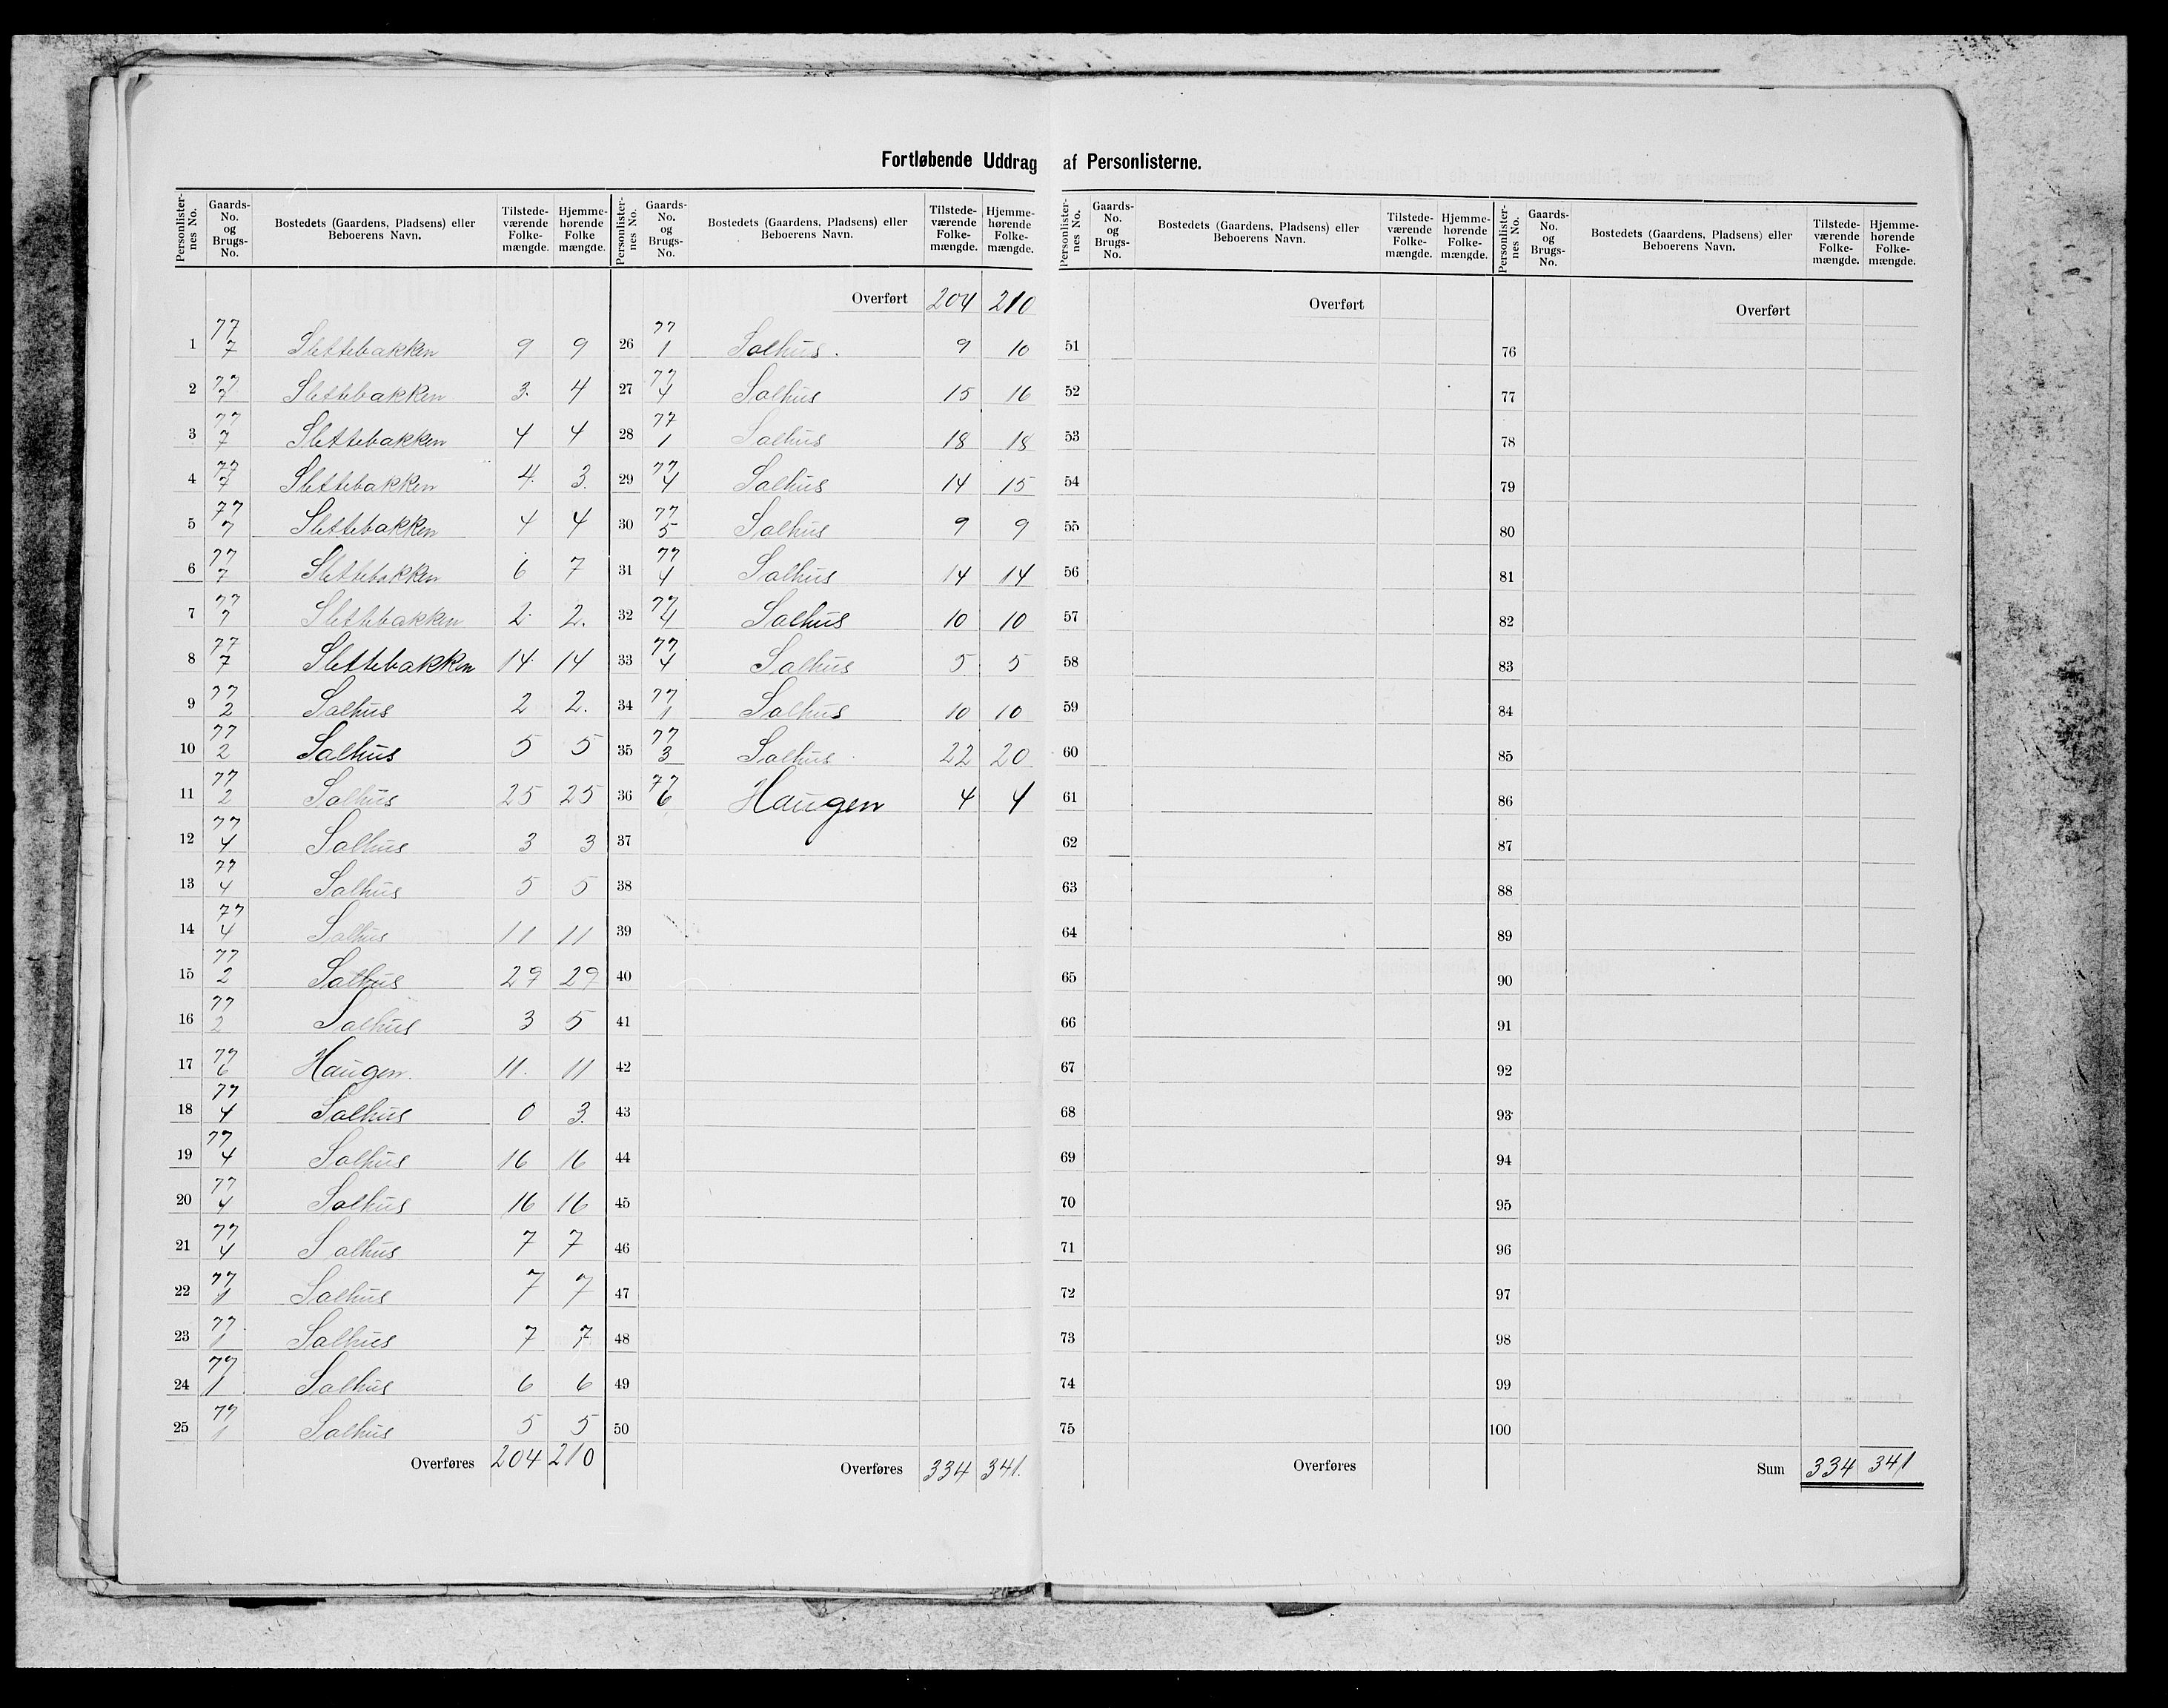 Fortløbende Uddrag af Personlisterne.
Personlister-nes No. | Gaards-No. og Brugs-No. | Bostedets (Gaardens, Pladsens) eller Beboerens Navn. | Tilstede-værende Folke-mængde. | Hjemme-hørende Folke mængde.
1 77/7 Slettebakken 9 9
2 77/7 Slettebakken 3. 4
3 77/7 Slettebakken 4 4
4 77/7 Slettebakken 4. 3.
5 77/7 Slettebakken 4 4
6 77/7 Slettebakken 6 7
7 77/7 Slettebakken 2. 2.
8 77/7 Slettebakken 14. 14
9 77/2 Salhus 2 2.
10 77/2 Salhus 5 5
11 77/2 Salhus 25 25
12 77/4 Salhus 3 3
13 77/4 Salhus 5 5
14 77/4 Salhus 11 11
15 77/2 Salhus 29 29
16 77/2 Salhus 3 5
17 77/6 Haugen. 11. 11
18 77/4 Salhus 0 3.
19 77/4 Salhus 16 16
20 77/4 Salhus 16 16
21 77/4 Salhus 7 7
22 77/1 Salhus 7 7
23 77/1 Salhus 7 7
24 77/1 Salhus 6 6
25 77/1 Salhus 5 5
Overføres 204 210
Personlister-nes No. | Gaards-No. og Brugs-No. | Bostedets (Gaardens, Pladsens) eller Beboerens Navn. | Tilstede-værende Folke-mængde. | Hjemme-hørende Folke-mængde.
Overført 204 210
26 77/1 Salhus. 9 10
27 77/4 Salhus 15 16
28 77/1 Salhus 18 18
29 77/4 Salhus 14 15
30 77/5 Salhus 9 9
31 77/4 Salhus 14 14
32 77/4 Salhus 10 10
33 77/4 Salhus 5 5
34 77/1 Salhus 10 10
35 77/3 Salhus 22 20
36 77/6 Haugen 4 4
37
38
39
40
41
42
43
44
45
46
47
48
49
50
Overføres 334 341.
Personlister-nes No. | Gaards-No. og Brugs-No. | Bostedets (Gaardens, Pladsens) eller Beboerens Navn. | Tilstede-værende Folke-mængde. | Hjemme-hørende Folke-mængde.
Overført
51
52
53
54
55
56
57
58
59
60
61
62
63
64
65
66
67
68
69
70
71
72
73
74
75
Overføres
Personlister-nes No. | Gaards-No. og Brugs-No. | Bostedets (Gaardens, Pladsens) eller Beboerens Navn. | Tilstede-værende Folke-mængde. | Hjemme-hørende Folke-mængde.
Overført
76
77
78
79
80
81
82
83
84
85
86
87
88
89
90
91
92
93
94
95
96
97
98
99
100
Sum 334 341